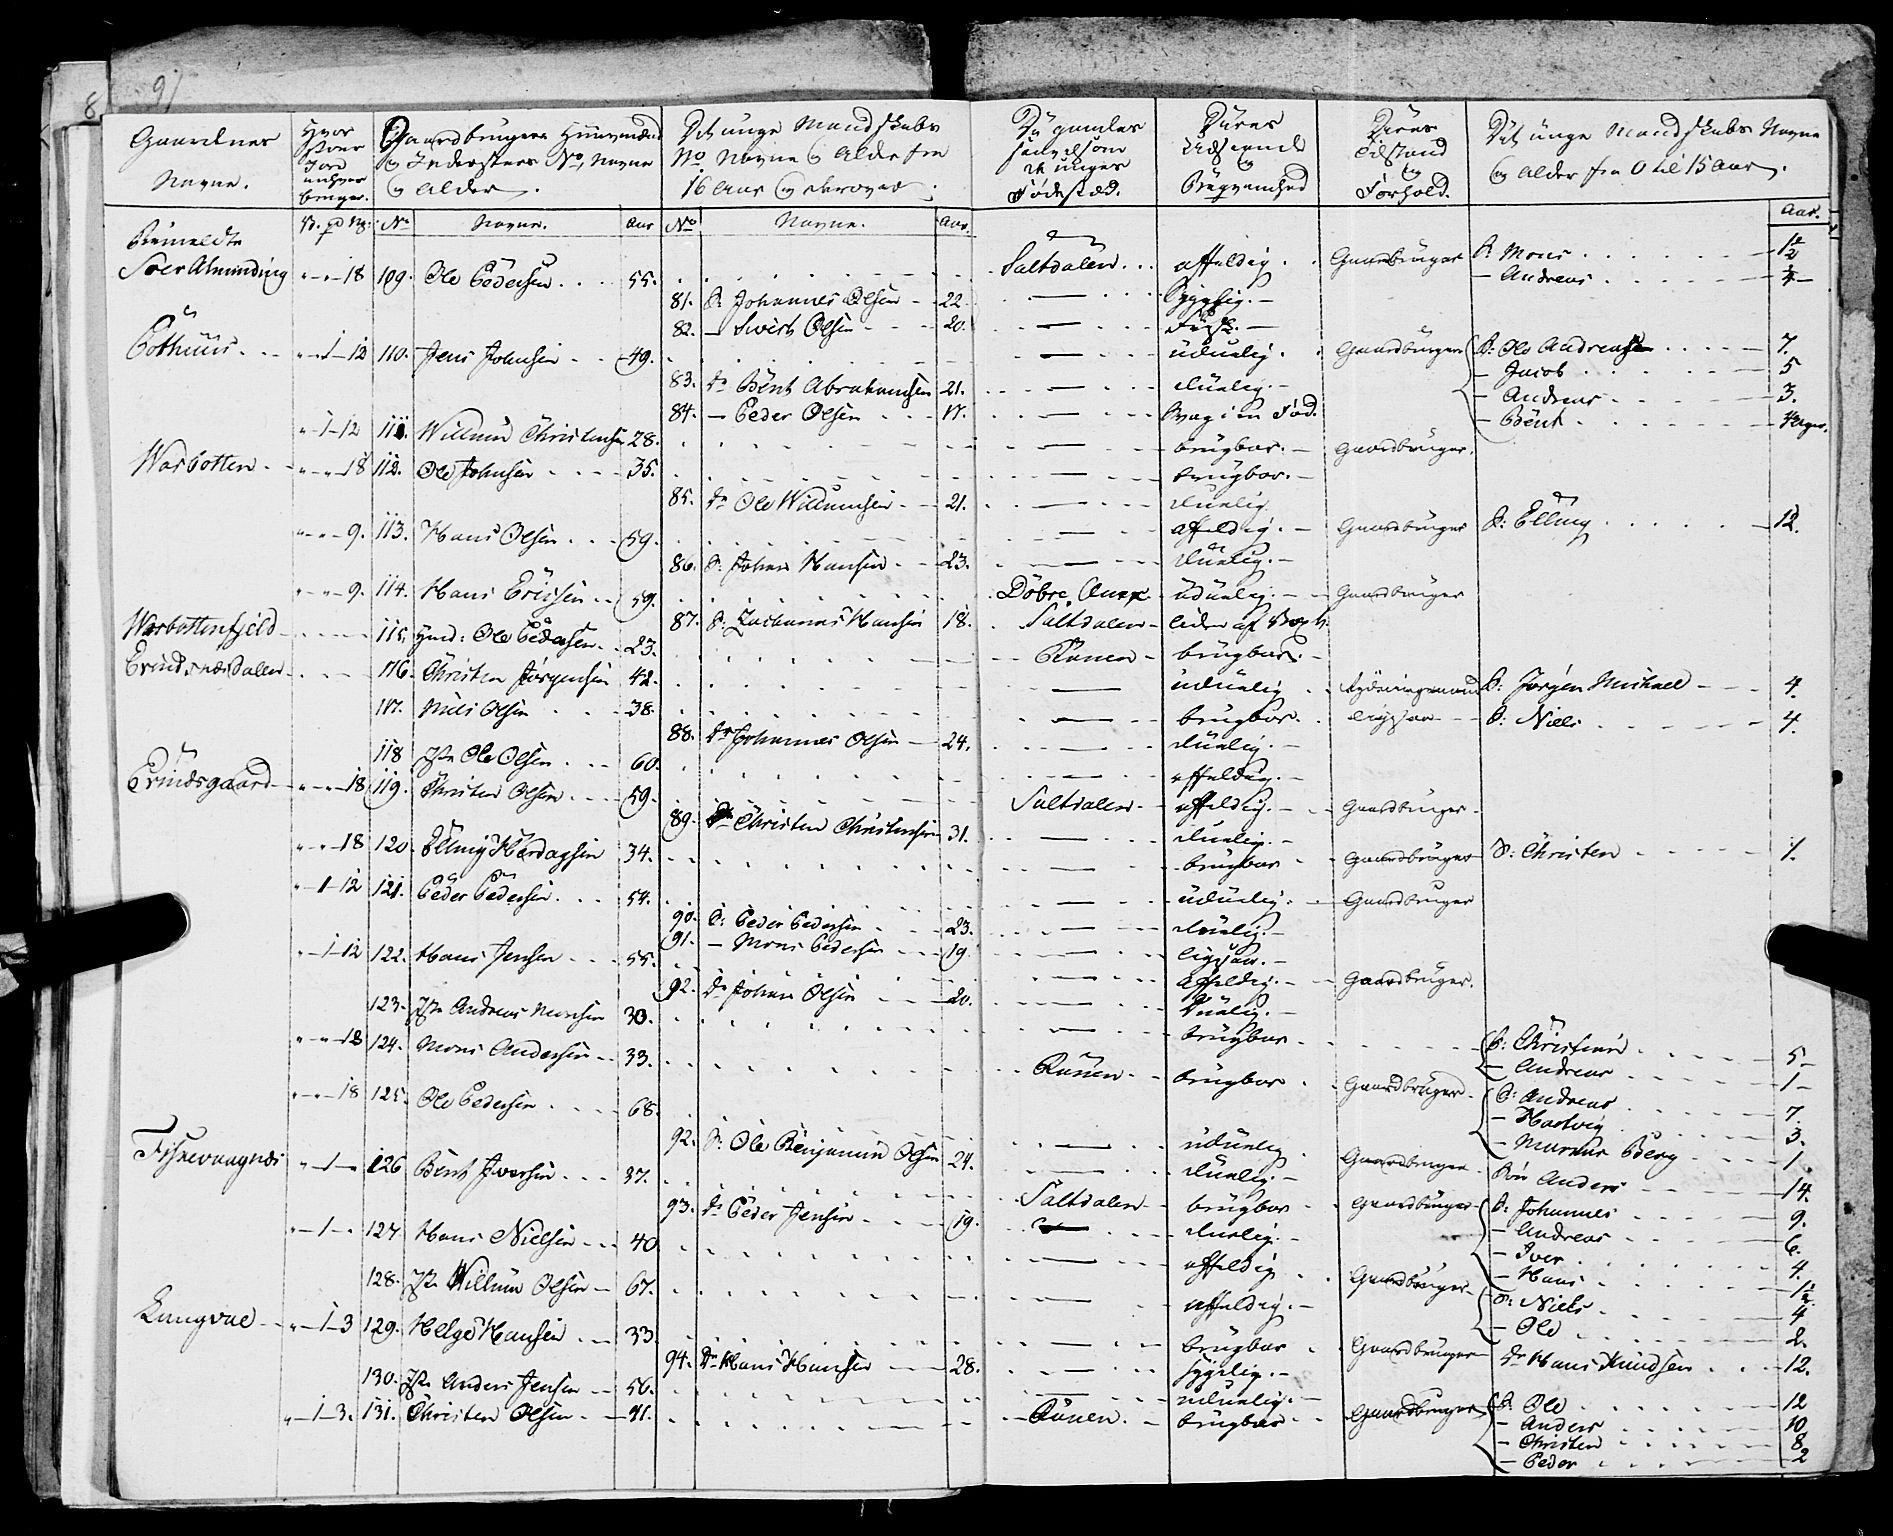 91
8
Gaardenes Navne.
Hvor Stoer Jord enhver bruger.
Gaardbrugere Huusmænd og Indersters No, Navne og Alder.
Det unge Mandskabs No Navne og Alder fra 16 Aar og derover.
De gamles saavelsom de unges Fødested.
Deres Udseende og Beqvemhed
Deres Tilstand og Forhold.
Det unge Mandskabs Navne og Alder fra 0 til 15 Aar.
No Navne. Aar No Navne. Aar. Aar.
Bemeldte
Soer Almending " - " - 18 109. Ole Pedersen 55. Saltdalen affeldig. Gaardbruger S: Mons 1½
— Andreas
81. S: Johannes Olsen 22 — Sygelig.
82. — Sivert Olsen 20. —
Pothuus " - 1 - 12 110. Jens Johnsen 49. — uduelig. Gaardbruger S: Ole Andreas 7.
— Jacob 5
83. Dr Bent Abrahamsen 21. — duelig. — Andreas 3.
84. — Peder Olsen 17. — Svag i en Fod. — Bent
" - 1 - 12 111. Willum Christensen 28. — brugbar. Gaardbruger.
Warbotten " - " - 18 112. Ole Johnsen 35. — brugbar.
85. Dr Ole Willumsen 21. — duelig
" - " - 9. 113. Hans Olsen 59. — affeldig. Gaardbruger S: Elling 12.
86. S: Johan Hansen 23. — duelig.
" - " - 9. 114. Hans Ericsen 59. Dobre uduelig. Gaardbruger
87. S: Zacharias Hansen 18. Saltdalen lider af
Warbottenfjeld 115. Huusmd: Ole Pedersen 23. Ranen brugbar.
Evindsnæsdallen 116. Christen Jørgensen 42. — uduelig Rydningsmand S: Jørgen Michael 4.
117. Niels Olsen 38. — brugbar. ligesaa S: Niels 4.
88. Dr Johannes Olsen 24. — duelig.
118 Ole Olsen 60. — affeldig.
Evindsgaard " - " - 18 119. Christen Olsen 59. Saltdalen affeldig. Gaardbruger.
89. Dr Christen Christensen 31. — duelig.
" - " - 18 120. Elling Hardagsen 34. — brugbar Gaardbruger S: Christen 1.
" - 1 - 12 121. Peder Pedersen 54. — uduelig. Gaardbruger
90. S: Peder Pedersen 23. — duelig.
91. — Mons Pedersen 19. — ligesaa.
" - 1 - 12 122. Hans Jensen 55. — affeldig. Gaardbruger.
92. Dr Johan Olsen 20. — duelig.
123. Andreas Monsen 30. — brugbar
" - " - 18 124. Mons Andersen 33. Ranen brugbar Gaardbruger S: Christian 5
— Andreas 1
" - " - 18 125. Ole Pedersen 68. — uduelig Gaardbruger S: Andreas 7
— Hartvig 3.
— Marcus Berg 1.
92. S: Ole Benjamin Olsen 24. — duelig.
Fiskevaagnæs " - 1 - " 126 Bent Iversen 37. Saltdalen brugbar Gaardbruger Anders 14.
S: Johannes 9.
— Andreas 6.
— Iver 4.
— Hans 1½
93. Dr Peder Jensen 19. duelig.
" - 1 - " 127. Hans Nielsen 40 — affeldig Gaardbruger S: Niels 4
— Ole 2.
128. Willum Olsen 67. — affeldig.
Langvae " - 1 - 3 129. Helge Hansen 33. — brugbar Gaardbruger Dr Hans Knudsen 12.
94. Dr Hans Hansen 28. — sygelig.
130. Anders Jensen 56. — uduelig.
" - 1 - 3. 131. Christen Olsen 41. Ranen. brugbar Gaardbruger S: Ole 12
— Anders 10
— Christen 8
— Peder 2